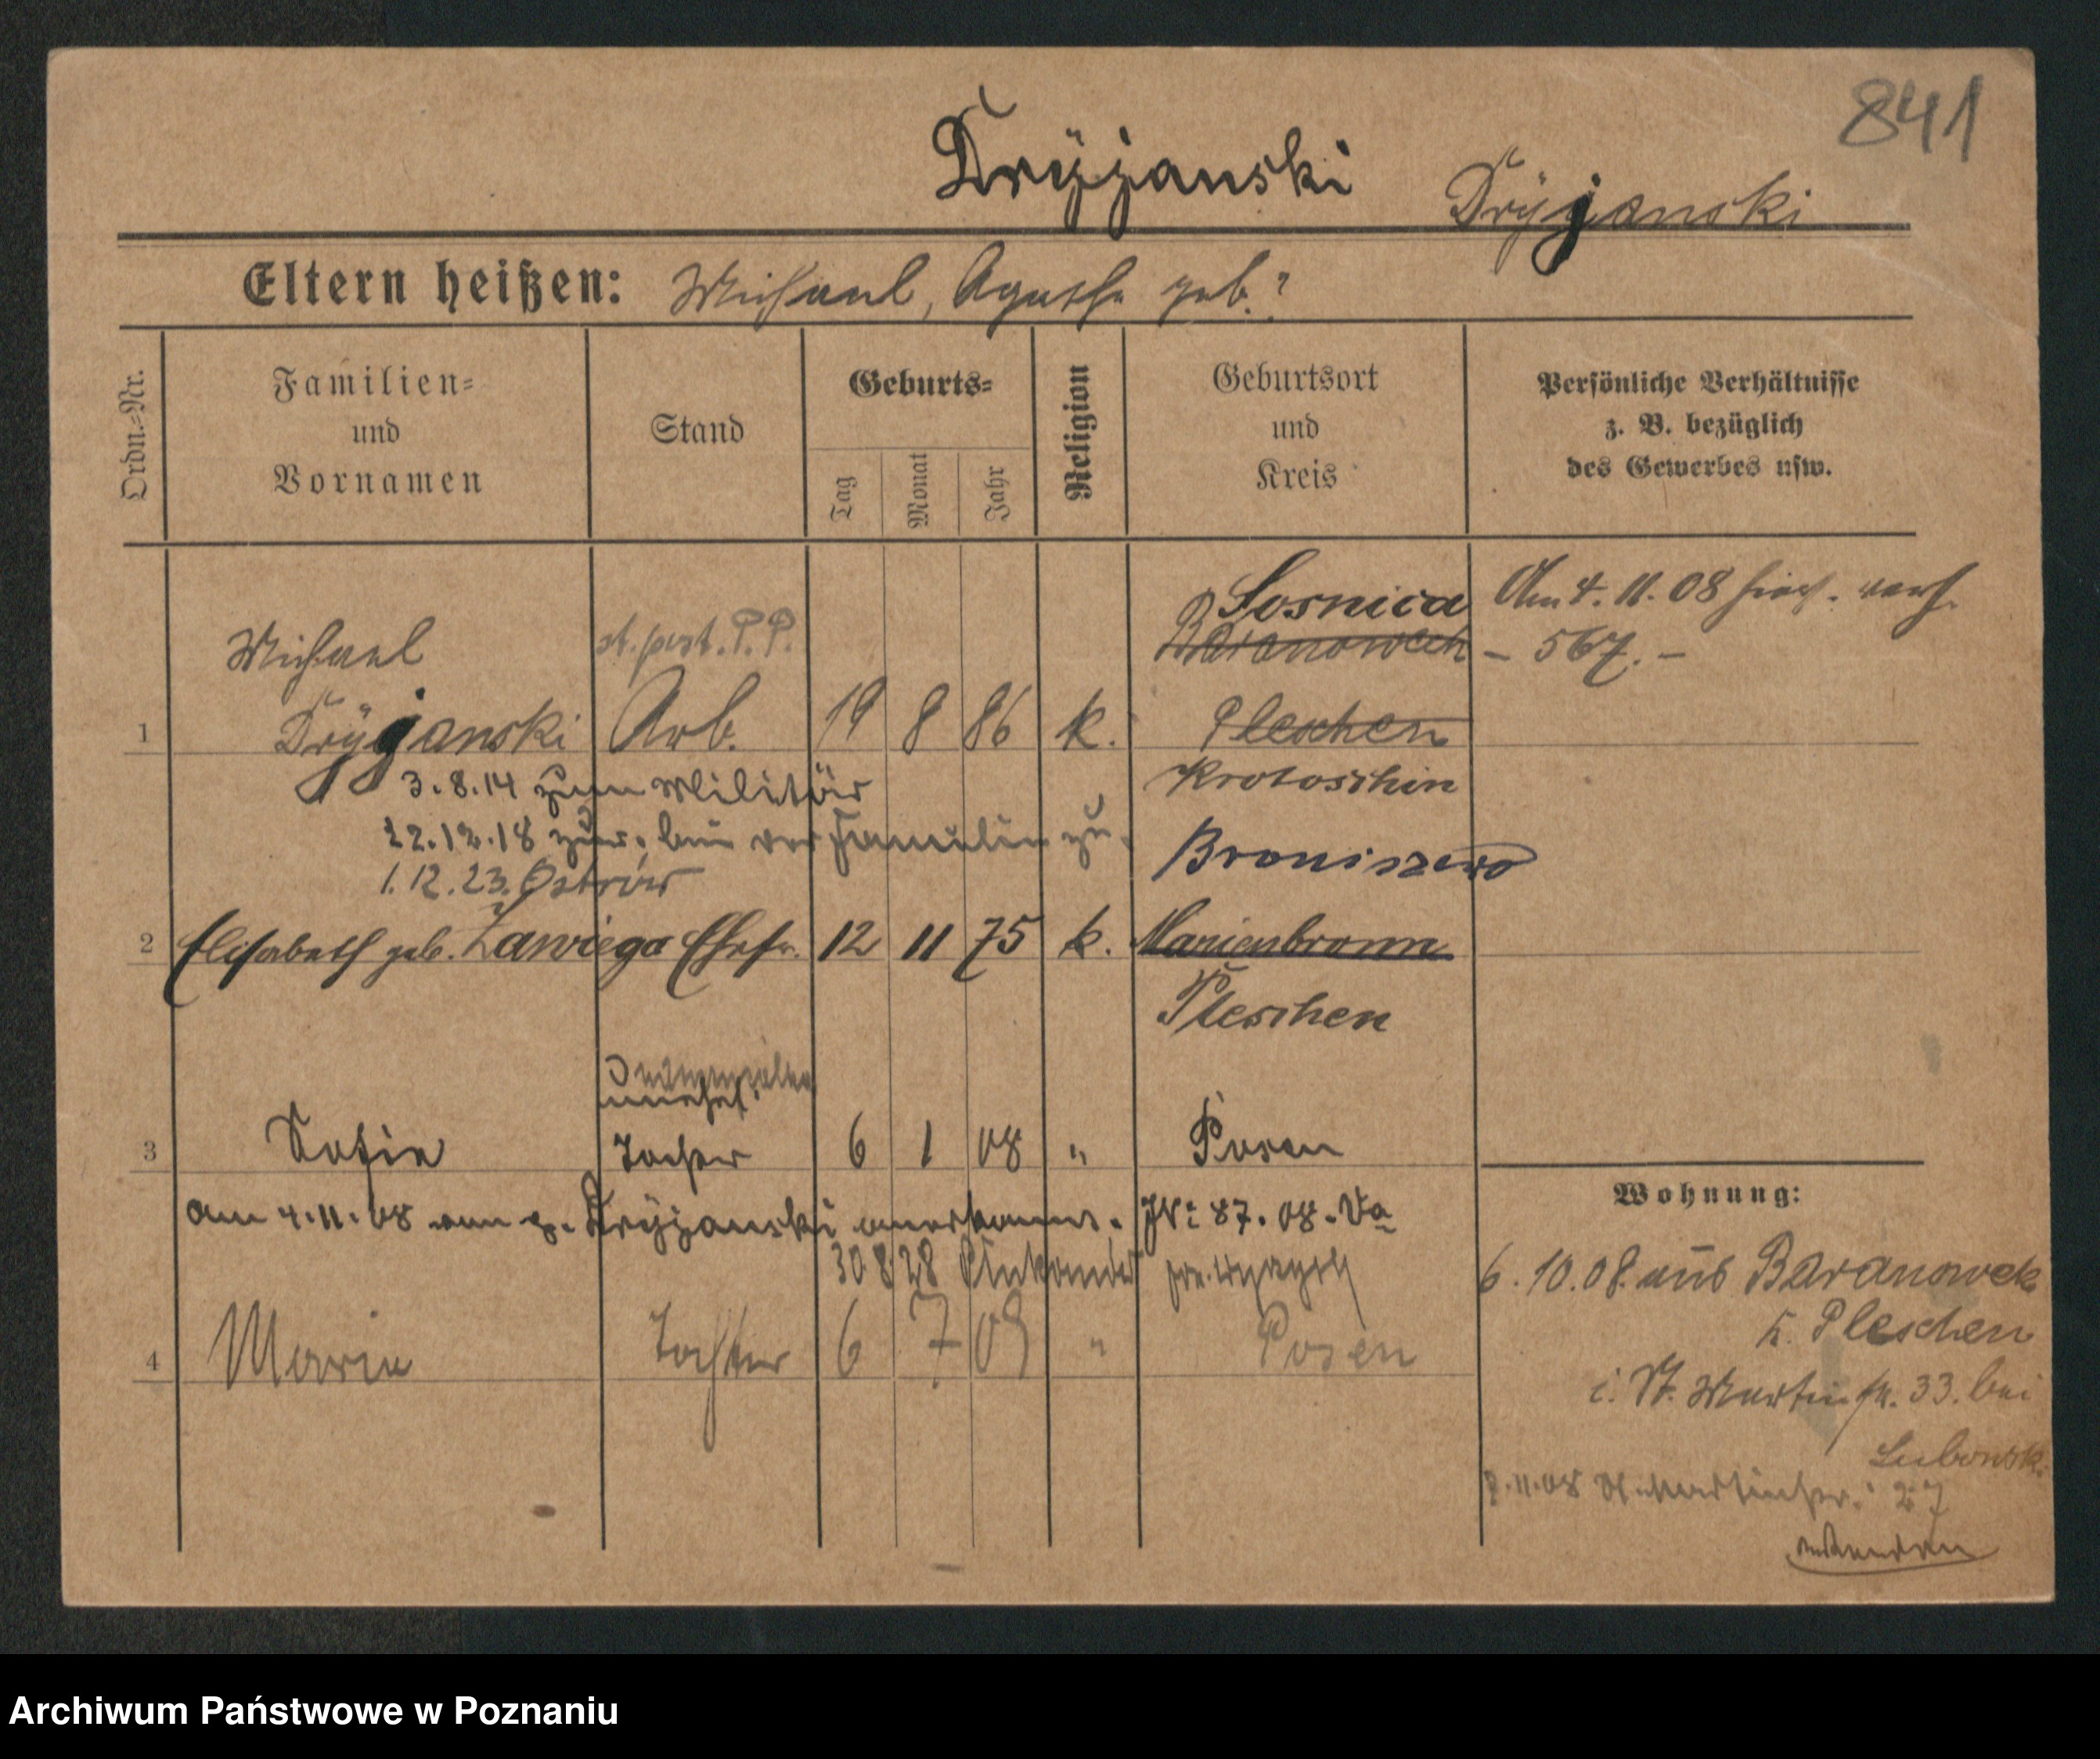 841
Dryjanski
Dryjanski
Eltern heißen: Michael, Agathe geb. ?
Ordn.=Nr.
Familien=
und
Vornamen
Stand
Geburts=
Tag
Monat
Jahr
Religion
Geburtsort
und
Kreis
Persönliche Verhältnisse
z. B. bezüglich
des Gewerbes usw.
Sosnica
Am 4. 11. 08 hier
Michael
Baranowek
– 567. –
1 Dryjanski Arb. 19 8 86 k. Pleschen
3. 8. 14 zum Militär
Krotoschin
22.12.18 zur. bei der Familie zu.
Broniszewo
1. 12. 23. Ostrów
2 Elisabeth geb. Zawiega Ehefr. 12 11 75 k. Marienbronn
Pleschen
unehel.
3 Sofie Tochter 6 1 08 " Posen
am 4. 11. 08 von p. Dryjanski anerkannt. 87. 08.
30 8 28
4 Marie Tochter 6 7 09 " Posen
Wohnung:
6. 10. 08. aus Baranowek
K. Pleschen
i. St. Martinstr. 33. bei
Lubowski
11. 08 St. Martinstr. 27